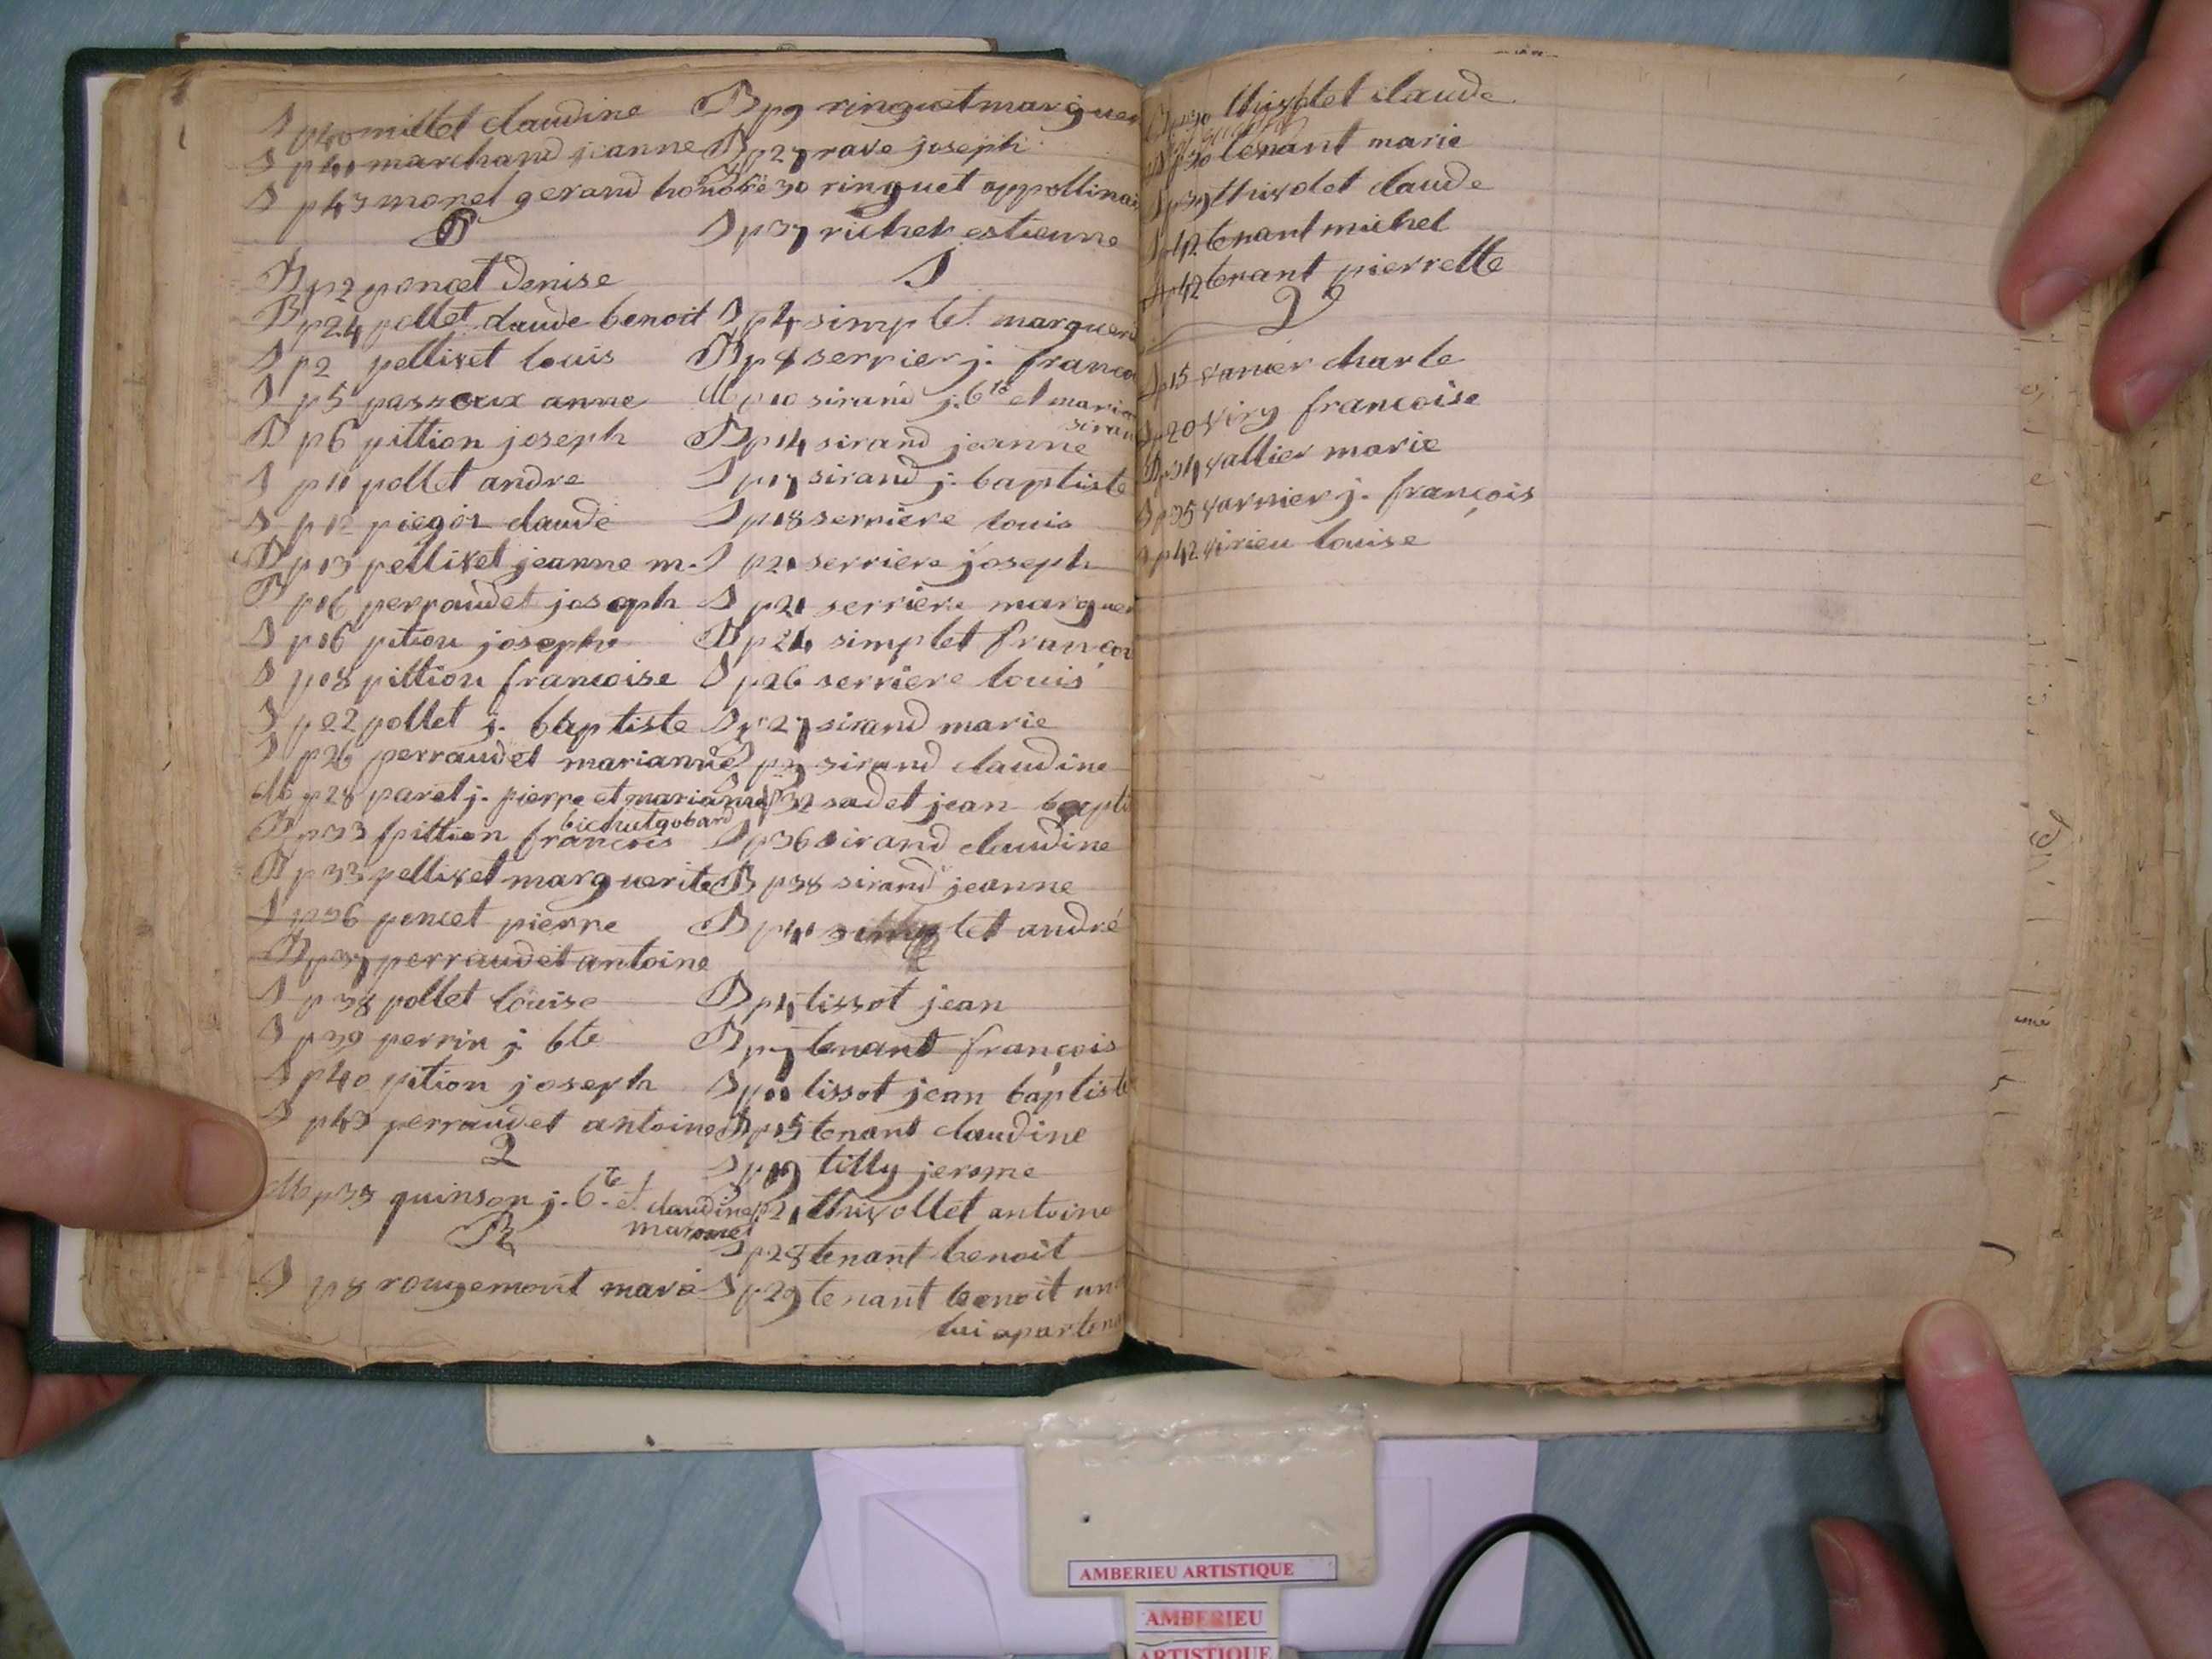 S p40 millet claudine
S p41 marchand jeanne
S p43 morel gerand honoré
P
B p2 poncet denise
B p24 pollet claude benoit
S p2 pellivet louis
S p5 passoux anne
B p6 pittion joseph
S p11 pollet andre
S p12 piegor claude
B p13 pellivet jeanne m.
B p16 perraudet joseph
S p16 pition joseph
S p18 pittion francoise
S p22 pollet j. baptiste
S p26 perraudet marianne
M p28 paret j. pierre et marianne
bichutgobard
B p33 pittion francois
B p33 pellivet marguerite
S p36 poncet pierre
B p37 perraudet antoine
S p38 pollet louise
S p39 perrin j bte
S p40 pition joseph
S p43 perraudet antoine
Q
M p33 quinson j. bte et claudine
R
S p8 rougemont marie
B p9 ringuet marguer
B p27 rave joseph
30 ringuet appollinai
S p37 richet estienne
S
S p4 simplet margueri
B p8 serrier j. franco
M p10 sirand j. bte et maria
siran
B p14 sirand jeanne
S p17 sirand j. baptiste
S p18 serriere louis
S p21 serriere joseph
S p21 serriere marguer
B p24 simplet françoi
S p26 serriere louis
S p27 sirand marie
sirand claudine
p32 sadet jean bapti
S p36 sirand claudine
B p38 sirand jeanne
B p41 simplet andré
T
B tissot jean
B p7 tenant françois
S p11 tissot jean baptiste
B p15 tenant claudine
S tilly jerome
p21 thivollet antoine
S p28 tenant benoit
S p29 tenant benoit un
lui apartena
p30 thivollet claude
p30 tenant marie
S p39 thivolet claude
S p42 tenant michel
p42 tenant pierrette
V
S p15 vanier charle
p20 viry francoise
vallier marie
S p35 varnier j. françois
S p42 virieu louise
AMBERIEU ARTISTIQUE
AMBERIEU
ARTISTIQUE